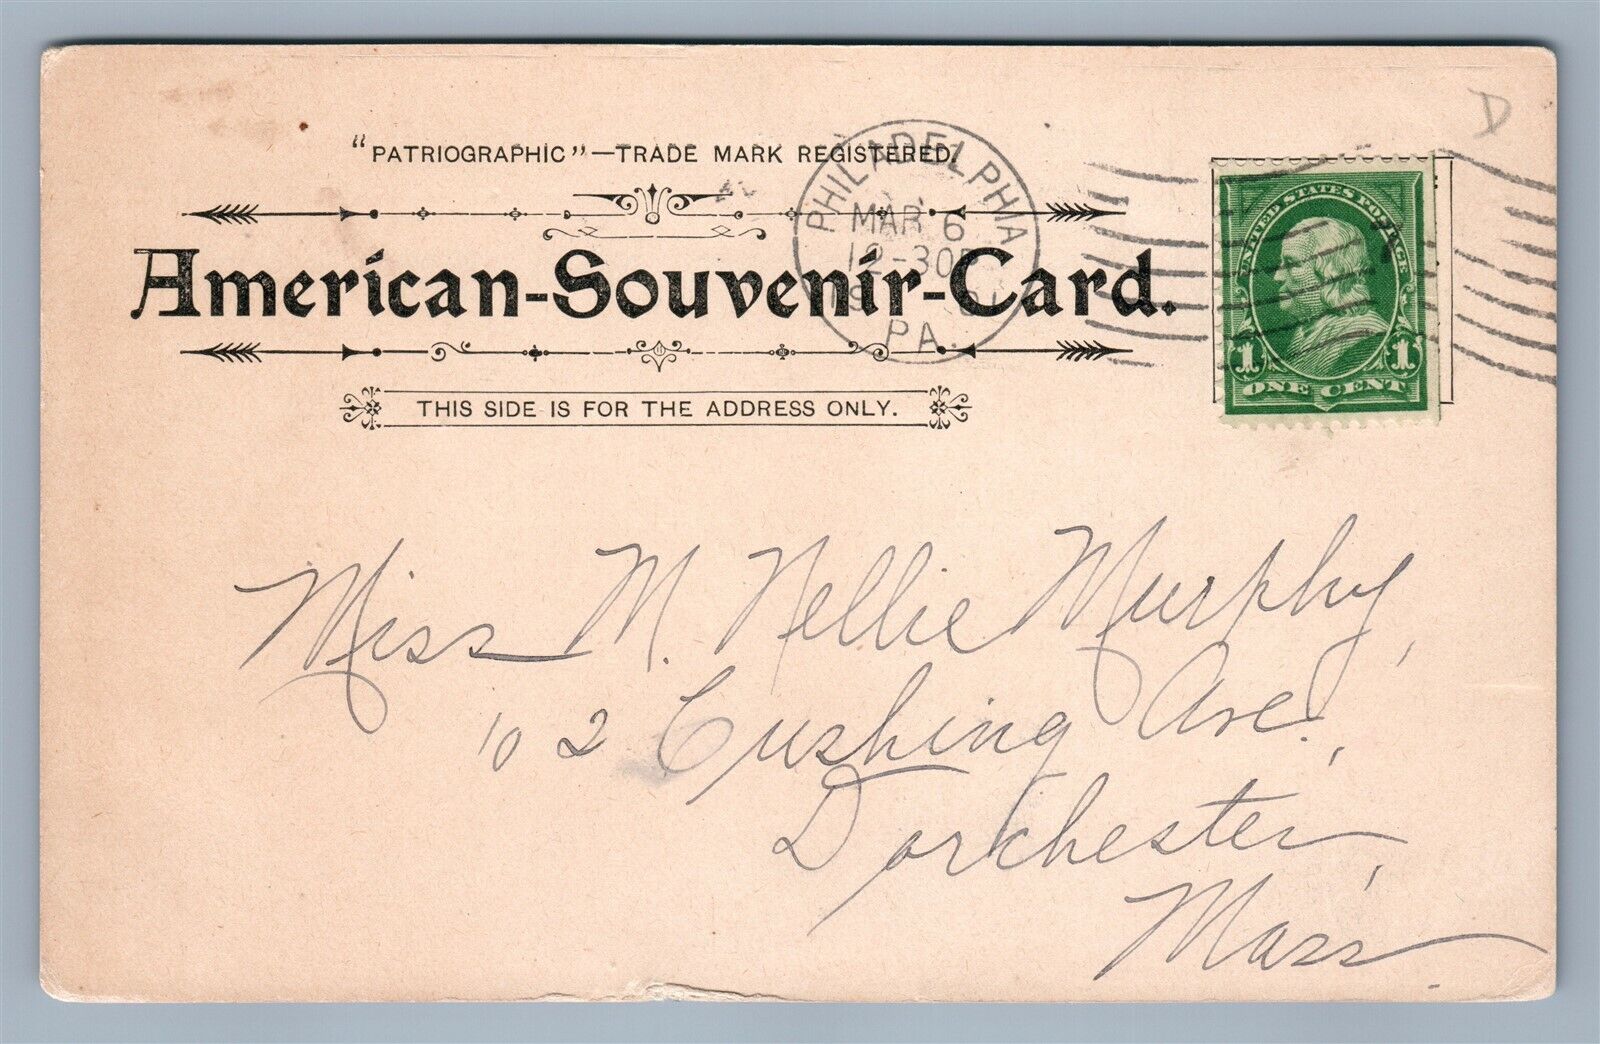 D
"PATRIOGRAPHIC"—TRADE MARK REGISTERED.
American-Souvenir-Card.
THIS SIDE IS FOR THE ADDRESS ONLY.
PHILADELPHIA
MAR 6
12-30
PA.
UNITED STATES POSTAGE
1 1
ONE CENT
Miss M. Nellie Murphy,
102 Cushing Ave.,
Dorchester,
Mass.